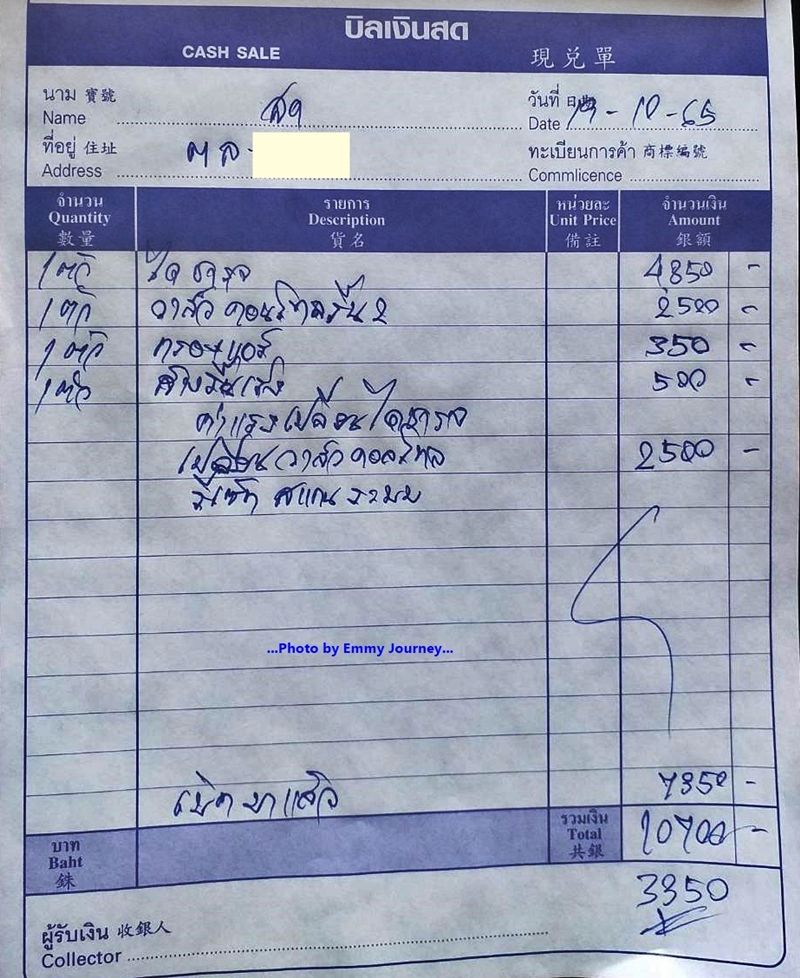 บิลเงินสด
CASH SALE 現兑單
นาม 寶號
Name สด
วันที่ 日期
Date 19-10-65
ที่อยู่ 住址
Address
ทะเบียนการค้า 商標編號
Commlicence
จำนวน รายการ หน่วยละ จำนวนเงิน
Quantity Description Unit Price Amount
數量 貨名 備註 銀額
1 ตัว ไดชาร์จ 4850 -
1 ตัว วาล์ว คอนโทลรีน 2 2500 -
1 ตัว กรองแอร์ 350 -
1 ตัว 500 -
ค่าแรงเปลี่ยนไดชาร์จ
เปลี่ยนวาล์วคอลโทล 2500 -
รีเซ็ท สแกนระบบ
...Photo by Emmy Journey...
เบิกมาแล้ว 7350 -
บาท
Baht
銖
รวมเงิน
Total 10700 -
共銀
3350
ผู้รับเงิน 收銀人
Collector